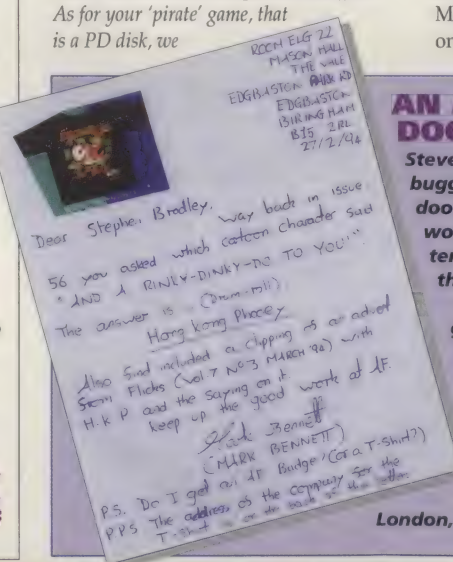 As for your 'pirate' game, that
is a PD disk, we
ROOM ELG 22
MASON HALL
THE VALE
EDGBASTON PARK RD
EDGBASTON
BIRINGHAM
B15 2RL
27/2/94
Dear Stephen Bradley,
Way back in issue
56 you asked which cartoon character said
"AND A RINKY-DINKY-DO TO YOU!".
The answer is (Drum-roll)
Hong Kong Phooey
Also find included a clipping of an advert
from Flicks (Vol 7 No 3 MARCH '94) with
H.K P and the saying on it
keep up the good work at AF.
Mark Bennett
(MARK BENNETT)
P.S. Do I get an AF Badge (or a T-Shirt?)
P.P.S The address of the company for the
T-shirt is on the back of this letter
M
or
AN
DOO
Steve
bugg
doo
wo
ter
th
London,